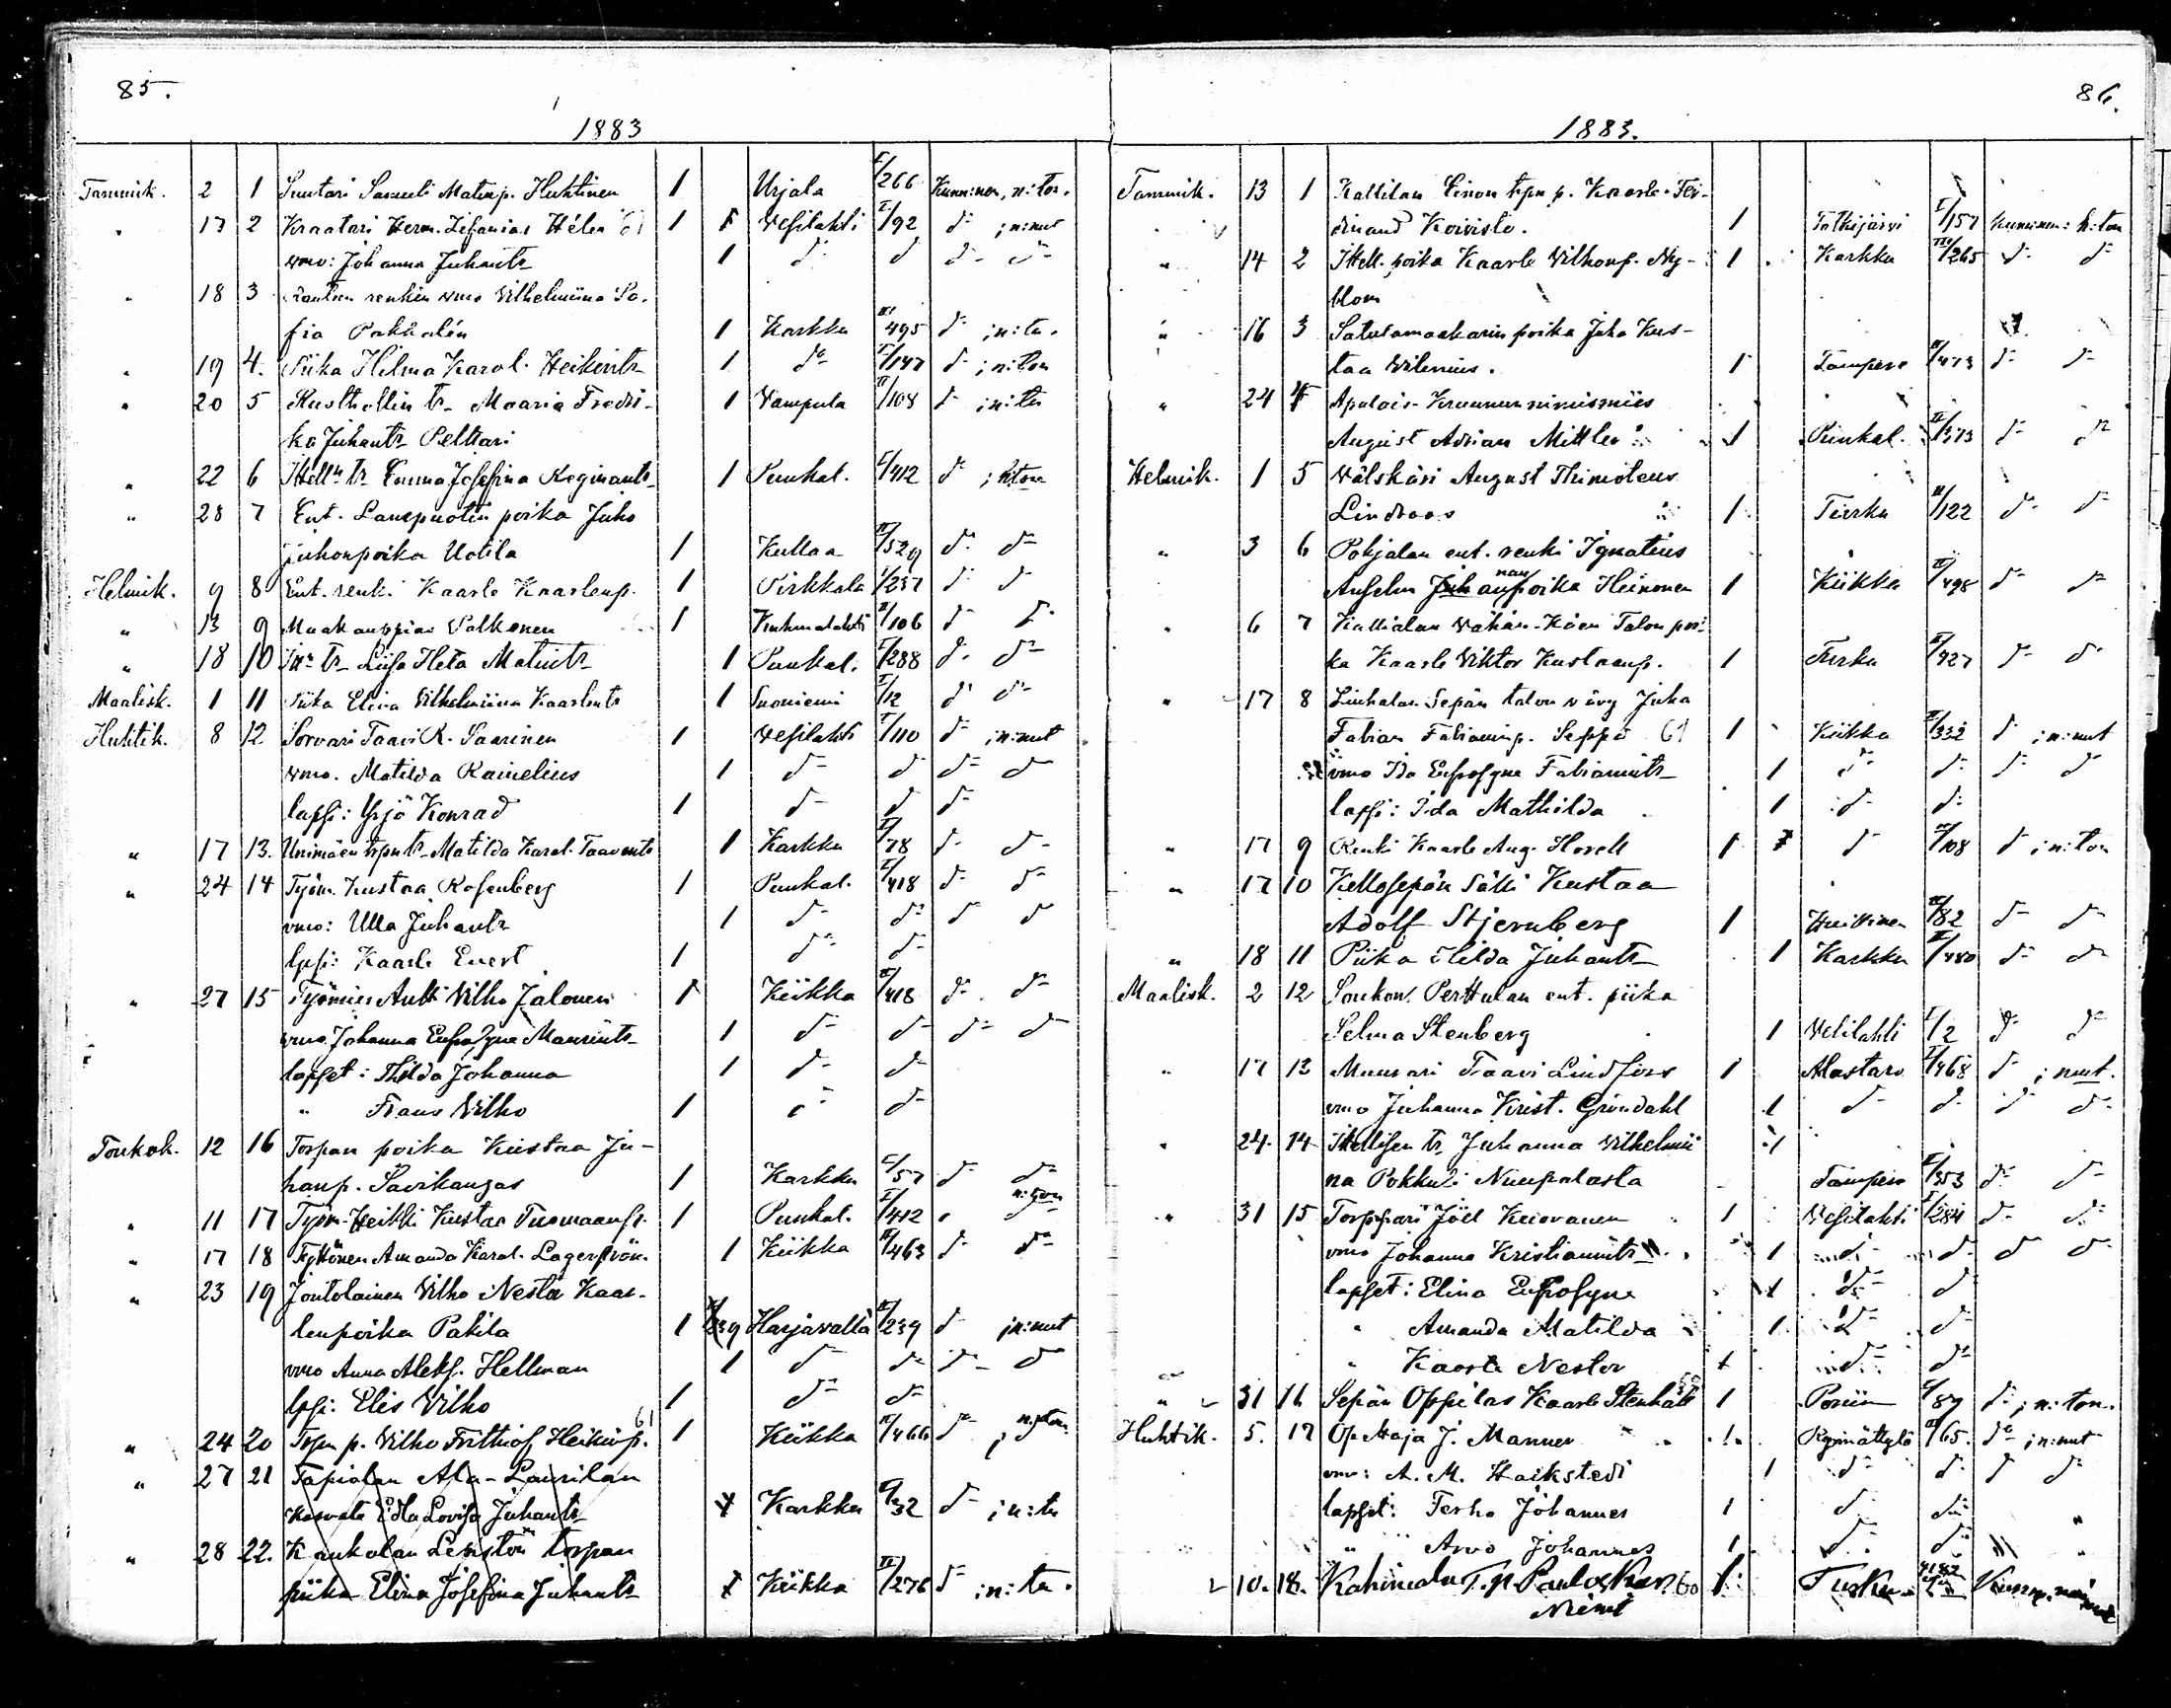 85.
1883
Tammik. 2 1 Suutari Samuli Matinp. Huhtinen 1 Urjala I/266 Kunninen, n:ton.
" 17 2 Kraatari Herm. Zefanias Hélen 61 1 1 Vesilahti I/92 d:o ; n:nut
vmo: Johanna Juhantr 1 d:o d:o d:o d:o
" 18 3 renkin vmo Vilhelmiina So-
fia 1 Karkku 495 d:o ; n:tu.
" 19 4. Piika Hilma Karol. Heikintr 1 d:o I/147 d:o ; n:ton
" 20 5 Rusthollin tr. Maaria Fredri- 1 Vampula II/108 d:o ; n:tu
ka Juhantr Pelttari
" 22 6 Itell:n tr Emma Josefina 1 Punkal. I/412 d:o ; n:ton
" 28 7 Ent. Lampuotin poika Juho
juhonpoika Uotila 1 Kullaa II/529 d:o d:o
Helmik. 9 8 Ent. renki Kaarle Kaarlenp. 1 Pirkkala I/257 d:o d:o
" 13 9 Maakauppias Salkonen 1 Kuhmalahti II/106 d:o d:o
" 18 10 tr Liisa Heta Matintr 1 Punkal. I/288 d:o d:o
Maalisk. 1 11 Piika Elina Vilhelmiina Kaarlentr 1 Suoniemi I/12 d:o d:o
Huhtik. 8 12 Sorvari Taavi K. Saarinen 1 Vesilahti I/110 d:o ; n:nut
vmo. Matilda Rainelius 1 d:o d:o d:o d:o
lapsi: Yrjö Konrad 1 d:o d:o d:o
" 17 13. Unimäen trpn tr. Matilda Karol. Taavintr 1 Karkku II/78 d:o d:o
" 24 14 Työm. Kustaa Rosenberg 1 Punkal. I/418 d:o d:o
vmo: Ulla Juhantr 1 d:o d:o d:o d:o
lpsi: Kaarle Evert 1 d:o d:o
" 27 15 Työmies Antti Vilho Jalonen 1 Kiikka II/418 d:o d:o
vmo. Johanna Eufrosyne Mauriintr 1 d:o d:o d:o d:o
lapset: Thilda Johanna 1 d:o d:o
" Frans Vilho 1 d:o d:o
Toukok. 12 16 Torpan poika Kustaa Ju-
hanp. Savikangas 1 Karkku I/57 d:o d:o
" 11 17 Työm. Heikki Kustaa Tuomaanp. 1 Punkal. I/412 " n:ton
" 17 18 Tyttönen Amanda Karol. Lagerström. 1 Kiikka II/463 d:o d:o
" 23 19 Joutolainen Vilho Nestor Kaar-
lenpoika Pakila 1 239 Harjavalta II/239 d:o ; n:nut
vmo Anna Aleks. Hellman 1 d:o d:o d:o d:o
lpsi: Elis Vilho 1 d:o d:o
" 24 20 Trpn p. Vilho Frithiof Heikinp. 61 1 Kiikka II/466 d:o ; n:ton
" 27 21 Tapialan Ala-Laurilan
Kasvatti Edla Lovisa Juhantr 1 Karkku I/32 d:o ; n:tu
" 28 22. Kaukolan torpan
piika Elina Josefina Juhantr 1 Kiikka II/276 d:o ; n:tu.
86.
1883.
Tammik. 13 1 Kallilan Einon trpn p. Kaarle Fer-
dinand Koivisto. 1 Tottijärvi I/157 Kunninen: n:ton
" 14 2 Itell. poika Kaarle Vilhonp. Ny- 1 Karkku III/265 d:o d:o
blom
" 16 3 Satulamaakarin poika Juho Kus-
taa Vilenius. 1 Tampere II/473 d:o d:o
" 24 4 Apulais-Kruununnimismies
August Adrian Mittler 1 Punkal. II/373 d:o d:o
Helmik. 1 5 Välskäri August Thimoteus
Lindroos 1 Turku II/122 d:o d:o
" 3 6 Pohjalan ent. renki Ignatius
Anselm Juhananpoika Heinonen 1 Kiikka II/498 d:o d:o
" 6 7 Kallialan Vähän-Käen Talon poi-
ka Kaarle Viktor Kustaanp. 1 Turku II/427 d:o d:o
" 17 8 Liuhalan Sepän talon vävy Juha
Fabian Fabianinp. Seppä 61 1 Kiikka II/332 d:o ; n:nut
vmo Ida Eufrosyne Fabianintr 1 d:o d:o d:o d:o
lapsi: Ida Mathilda 1 d:o d:o
" 17 9 Renki Kaarle Aug. Horell 1 d:o II/108 d:o ; n:ton
" 17 10 Kellosepän Sälli Kustaa
Adolf Stjernberg 1 Huittinen III/82 d:o d:o
" 18 11 Piika Hilda Juhantr 1 Karkku I/480 d:o d:o
Maalisk. 2 12 Soukon Perttulan ent. piika
Selma Stenberg 1 Vesilahti I/2 d:o d:o
" 17 13 Muurari Taavi Lindfors 1 Alastaro I/468 d:o ; nnut.
vmo Juhanna Krist. Gröndahl 1 d:o d:o d:o d:o
" 24. 14 Itellisen tr. Juhanna Vilhelmii 1
na Pokkuli Nuupalasta Tampere I/353 d:o d:o
" 31 15 Torppari Joel Keiovanen 1 Vesilahti I/284 d:o d:o
vmo Johanna Kristianintr 1 d:o d:o d:o d:o
lapset: Elina Eufrosyne 1 d:o d:o
" Amanda Matilda 1 d:o d:o
" Kaarle Nestor 1 d:o d:o
" 31 16 Sepän Oppilas Kaarle Stenhäll 1 Poriin I/89 d:o ; n:ton.
Huhtik. 5. 17 Opettaja J. Manner 1 Rymättylä I/65. d:o ; n:nut
vmo: A. M. Haikstedt 1 d:o d:o d:o d:o
lapset: Terho Johannes 1 d:o d:o "
" Arvo Johannes 1 d:o d:o " "
10. 18. T. p. Paulos 60 1 Turku Kunn. nainut
Niemi